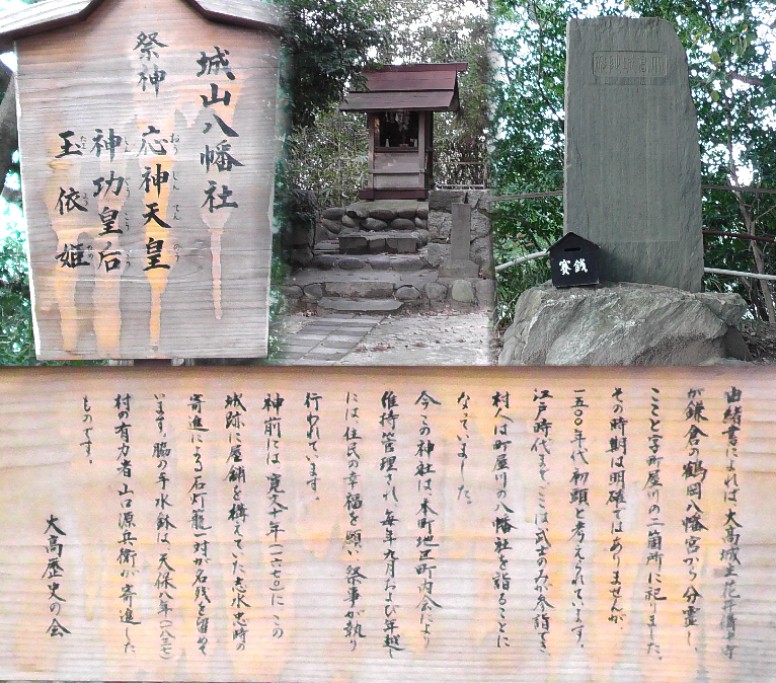 城山八幡社
祭神
応神天皇
おうじんてんのう
神功皇后
玉依姫
賽銭
由緒書によれば、大高城主花井備中守
が鎌倉の鶴岡八幡宮から分霊し、
こことと字町屋川の二箇所に祀りました。
その時期は明確ではありませんが、
一五〇〇年代初頭と考えられています。
江戸時代まで、ここは武士のみが参詣でき、
村人は町屋川の八幡社を詣ることに
なっていました。
今この神社は、本町地区町内会により
維持管理され、毎年九月および年越し
には、住民の幸福を願い、祭事が執り
行われています。
神前には、寛文十年(一六七〇)に、この
城跡に屋舗を構えていた志水忠時の
寄進による石灯籠一対が名残を留めて
います。脇の手水鉢は、天保八年(一八三七)
村の有力者山口源兵衛が寄進した
ものです。
大高歴史の会